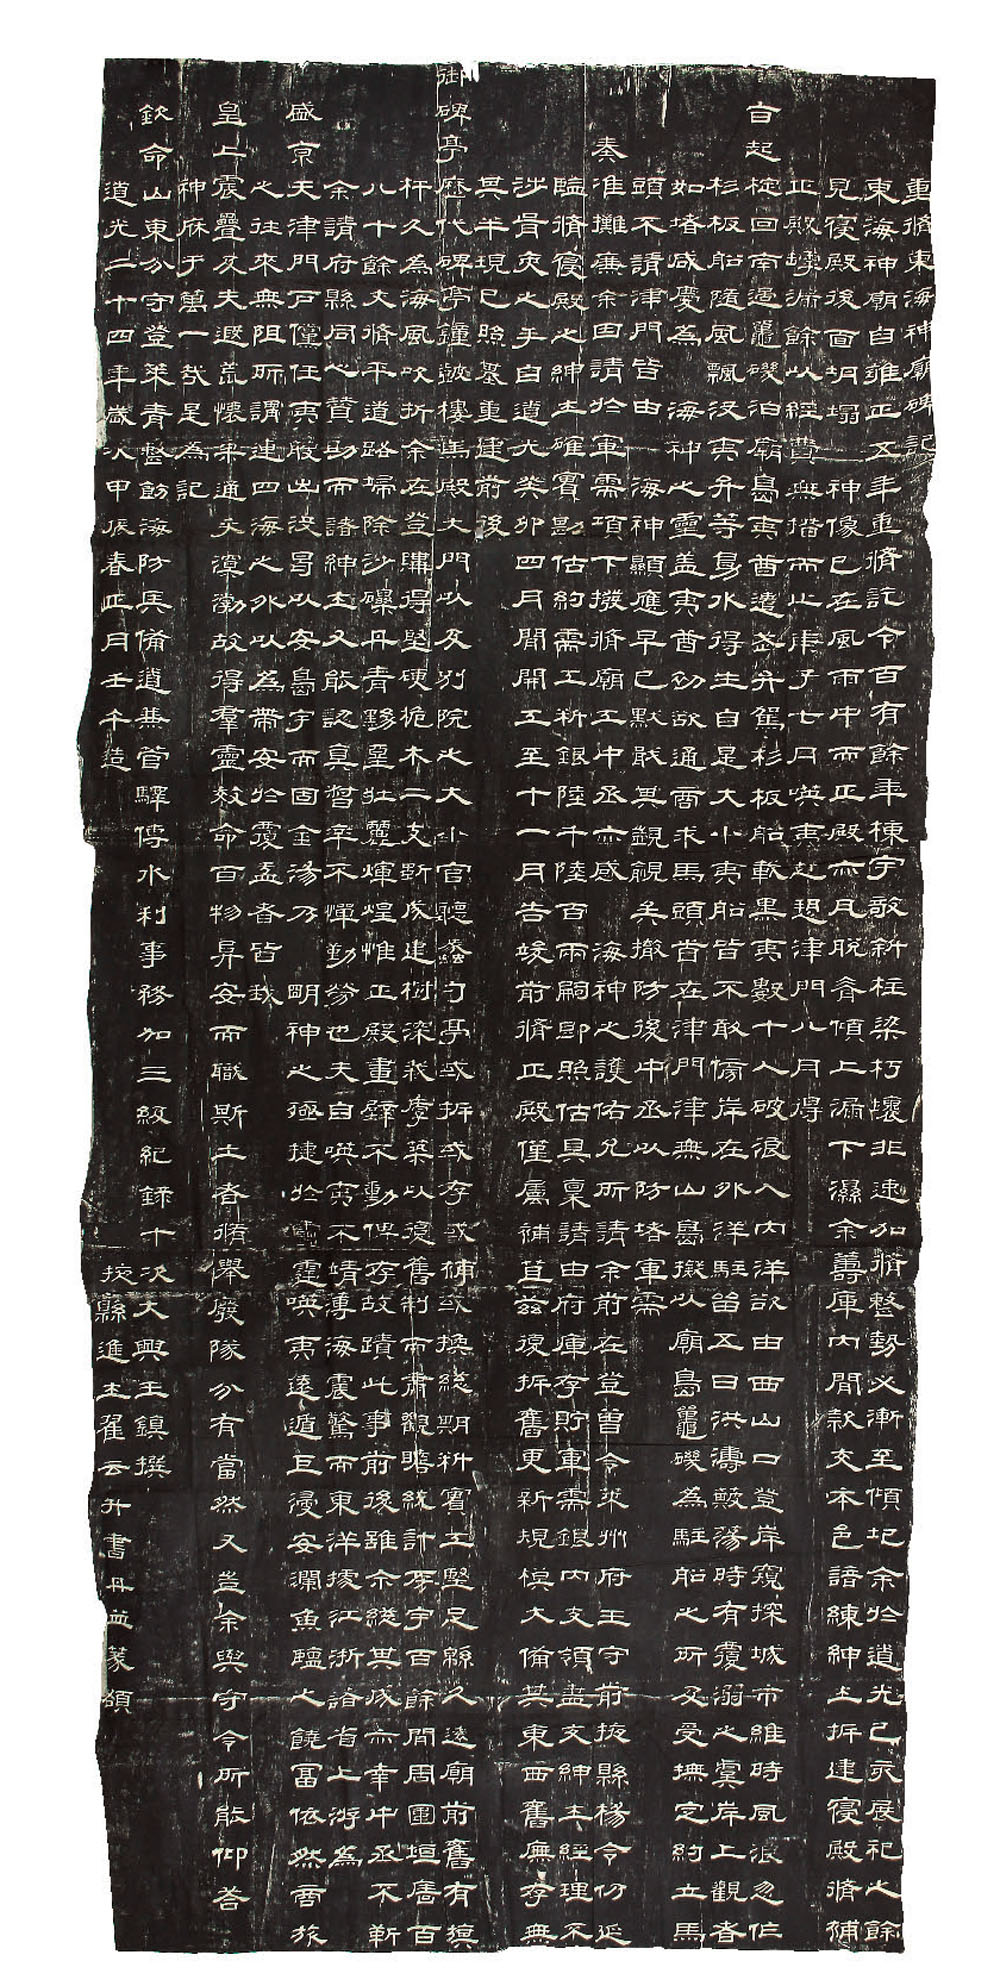 重脩東海神廟碑記
東海神廟自雍正五年重脩訖今百有餘年棟宇敧斜柱梁朽壞非速加脩整勢必漸至傾圮余於道光己亥展祀之餘
見寢殿後面坍塌 神像已在風雨中而正殿亦瓦脫脊傾上漏下濕余籌庫內閒款交本邑諳練紳士拆建寢殿脩補
正殿罅漏餘以經費無措而止庚子七月嘆夷赴碣津門八月得
旨起椗回南過鼉磯泊廟島夷酋遣武弁駕杉板船載黑夷數十人破浪入內洋欲由西山口登岸窺探城市維時風浪忽作
杉板船隨風飄沒夷弁等鳧水得生自是大小夷船皆不敢傍岸在外洋駐留五日洪濤簸蕩時有覆溺之虞岸上觀者
如堵咸慶為 海神之靈蓋夷酋初欲通商求馬頭首在津門津無山島擬以廟島鼉磯為駐船之所及受撫定約立馬
頭不請津門皆由 海神顯應早已默戢其覬覦矣撤防後中丞以防堵軍需
奏准攤廉余因請於軍需項下撥脩廟工中丞亦感 海神之護佑允所請余前在登曾令萊州府王守前掖縣楊令仍延
監脩寢殿之紳士確實勘估約需工料銀陸千陸百兩嗣即照估具稟請由府庫存貯軍需銀內支領盡交紳士經理不
涉胥吏之手自道光癸卯四月間開工至十一月告竣前脩正殿僅屬補苴茲復拆舊更新規模大備其東西舊廡存無
其半現已照基重建前後
御碑亭歷代碑亭鐘鼓樓馬殿大門以及別院之大小官廳亭或拆或存或補或換總期料實工堅足緜久遠廟前舊有旗
杆久為海風吹折余在登購得堅硬桅木二支斲成建樹深栽厚築以復舊制而肅觀瞻統計屋宇百餘間周圍垣墉百
八十餘丈脩平道路埽除沙礫丹青黝堊壯麗煇煌惟正殿畫壁不動俾存故蹟此事前後雖余其成亦幸中丞不靳
余請府縣同心贊助而諸紳士又能認真督率不憚勤勞也夫自嘆夷不靖薄海震驚而東洋據江浙諸省上游為
盛京天津門戶儻任夷股出沒曷以安島宇而固金湯乃 明神之極捷於霆嘆夷遠遁巨浸安瀾魚鹽之饒富依然商旅
之往來無阻所謂連四海之外以為帶安於覆盂者皆我
皇上震疊及夫遐荒懷柔通夫溟渤故得羣靈效命百物昇安而職斯土者脩舉廢隊分有當然又豈余與守令所能仰荅
神庥于萬一哉是為記
欽命山東分守登萊青整飭海防兵備道兼管驛傳水利事務加三級紀錄十次大興王鎮撰
道光二十四年歲次甲辰春正月壬午造 掖縣進士翟云升書丹並篆額